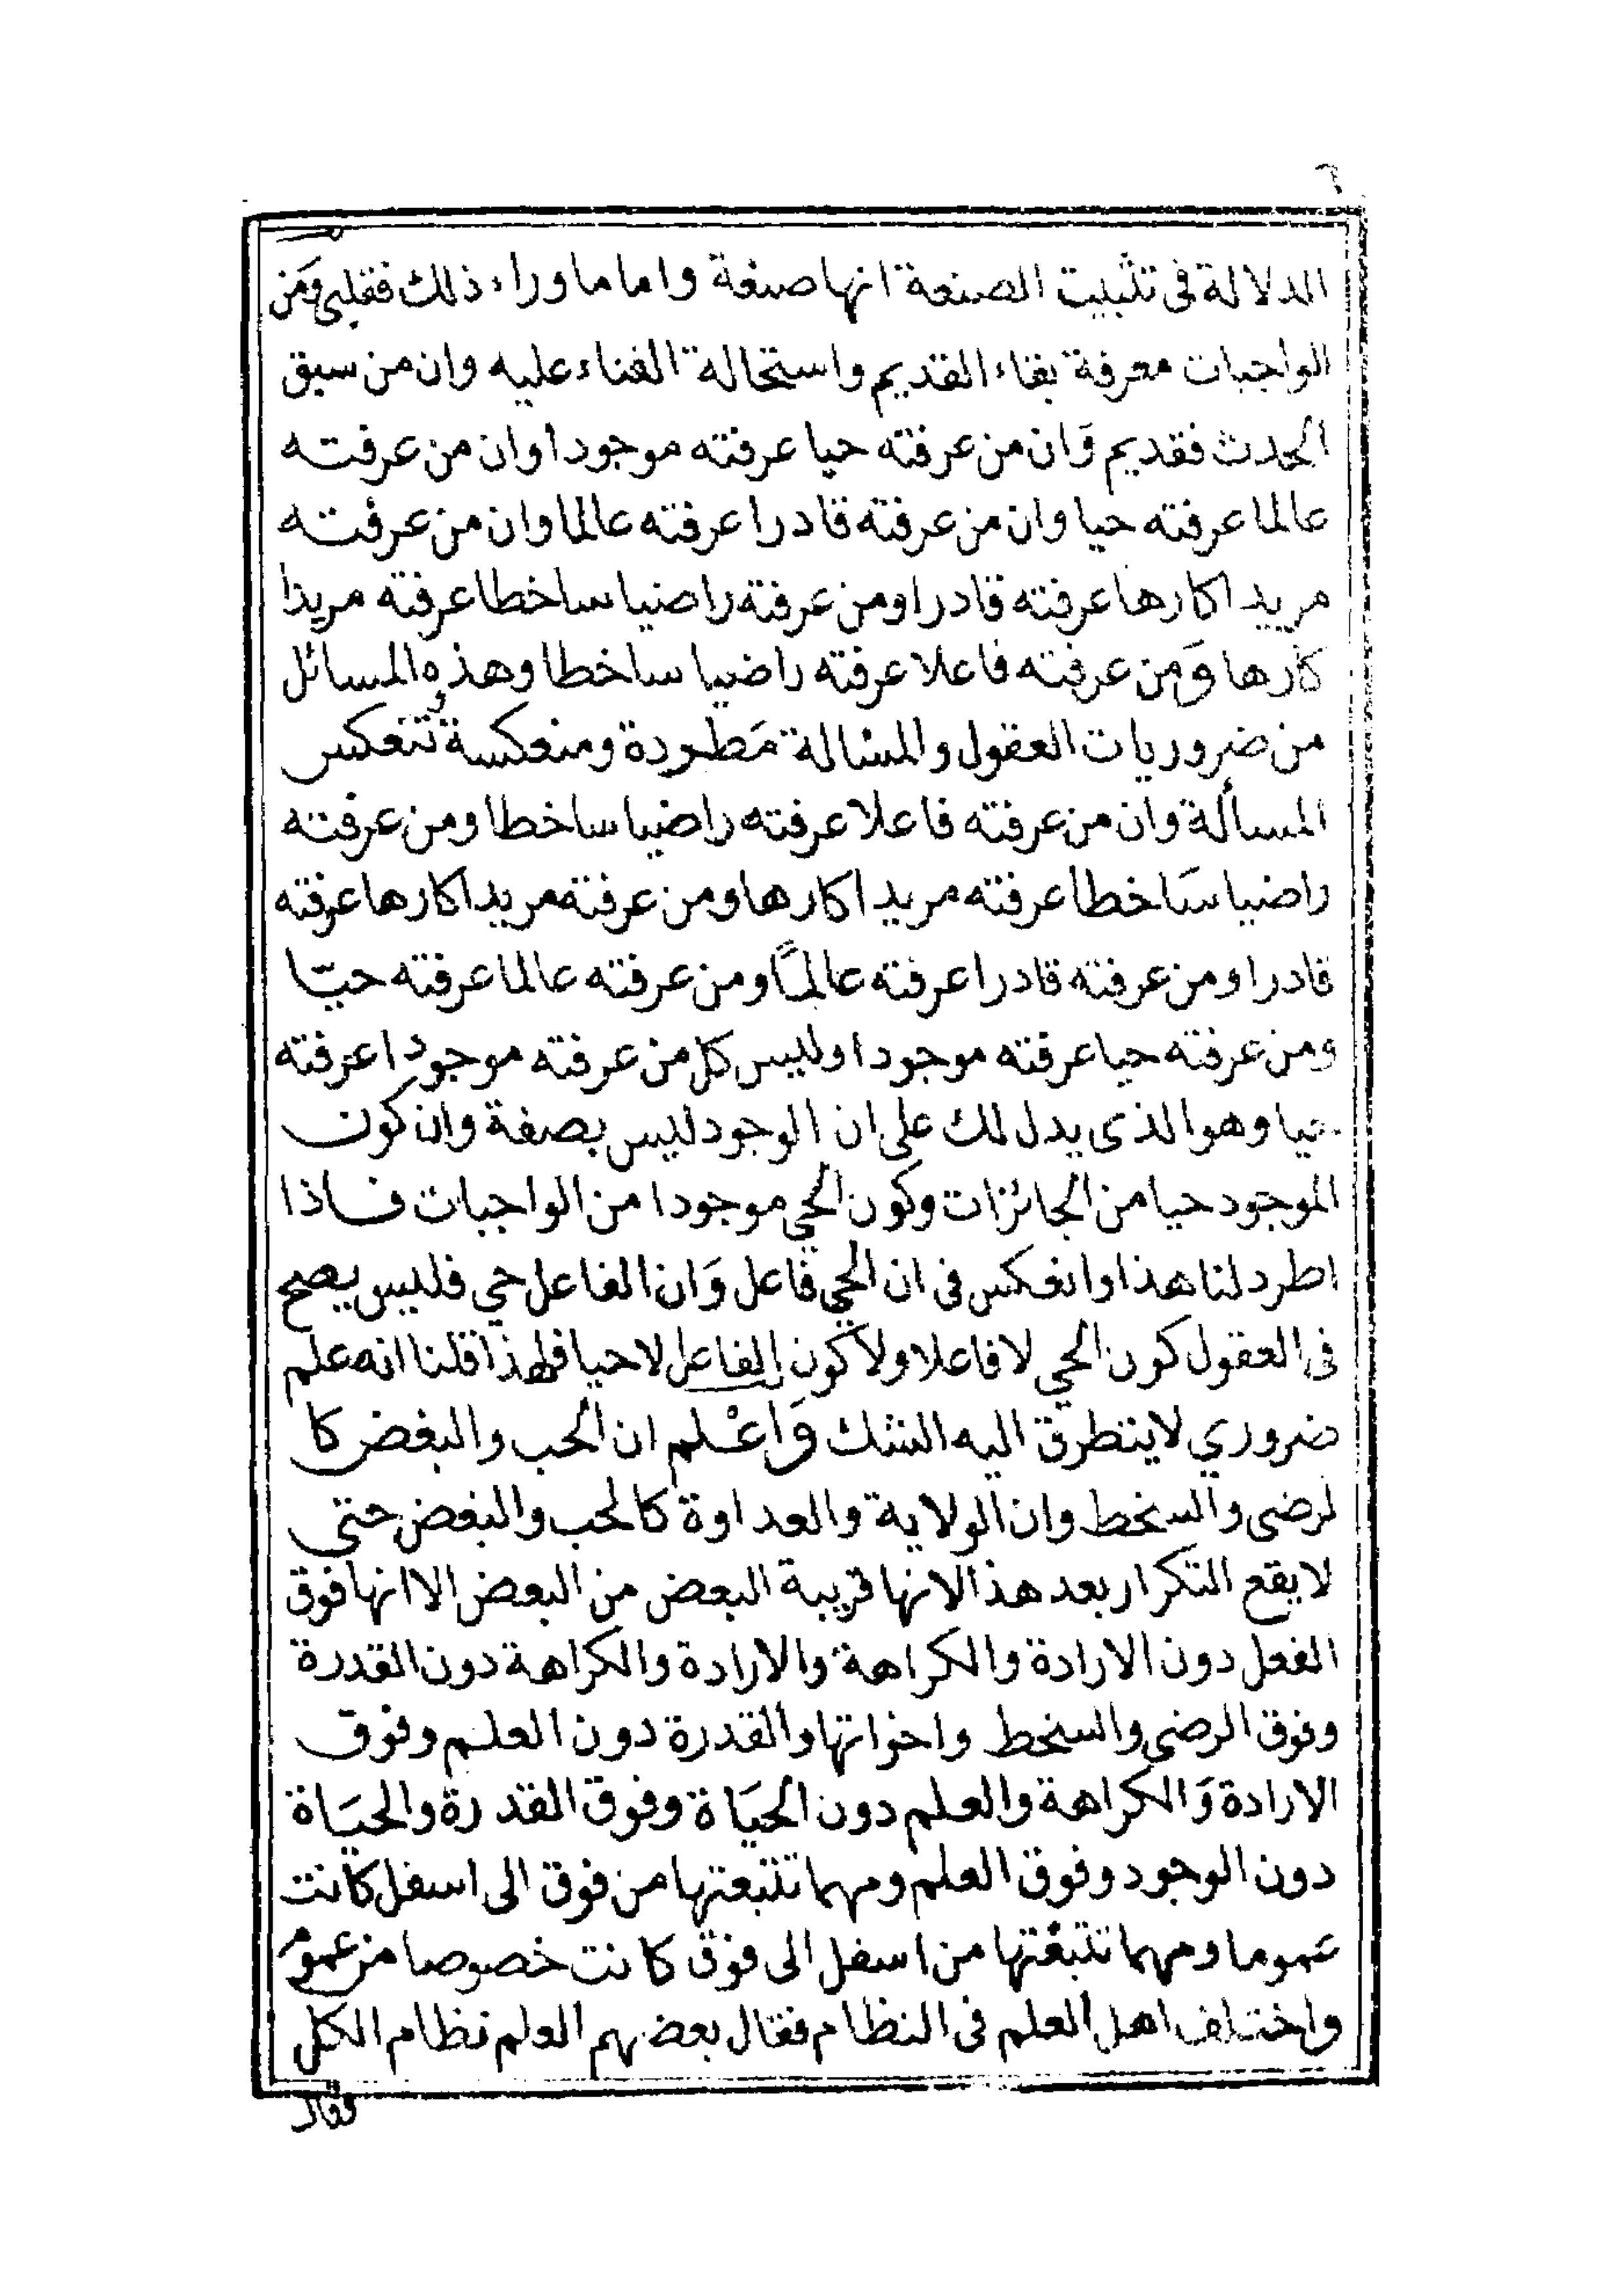 ٦
الدلالة فى تثبيت الصنعة انها صنعة واما ما وراء ذلك فقلبى وَمن
الواجبات معرفة بقاء القديم واستحالة الفناء عليه وان من سبق
الحدث فقديم وَان من عرفته حيا عرفته موجودا وان من عرفته
عالما عرفته حيا وان من عرفته قادرا عرفته عالما وان من عرفته
مريدا كارها عرفته قادرا ومن عرفته راضيا ساخطا عرفته مريدا
كارها وَمن عرفته فاعلا عرفته راضيا ساخطا وهذه المسائل
من ضروريات العقول والمسالة مَطردة ومنعكسة وتنعكس
المسألة وان من عرفته فاعلا عرفته راضيا ساخطا ومن عرفته
راضيا سَاخطا عرفته مريدا كارها ومن عرفته مريدا كارها عرفته
قادرا ومن عرفته قادرا عرفته عالمًا ومن عرفته عالما عرفته حيّا
ومن عرفته حيا عرفته موجودا وليس كل من عرفته موجودا عرفته
حيا وهو الذى يدل لك على ان الوجود ليس بصفة وان كون
الموجود حيا من الجائزات وكون الحي موجودا من الواجبات فاذا
اطرد لنا هذا وانعكس فى ان الحي فاعل وَان الفاعل حي فليس يصح
فى العقول كون الحي لا فاعلا ولا كون الفاعل لا حيا فلهذا قلنا انه علم
ضروري لا يتطرق اليه الشك وَاعْلم ان الحب والبغض كا
لرضى والسخط وان الولاية والعداوة كالحب والبغض حتى
لا يقع التكرار بعد هذا لانها قريبة البعض من البعض الا انها فوق
الفعل دون الارادة والكراهة والارادة والكراهة دون القدرة
وفوق الرضى والسخط واخواتها والقدرة دون العلم وفوق
الارادة وَالكراهة والعلم دون الحيَاة وفوق القدرة والحيَاة
دون الوجود وفوق العلم ومهما تتبعتها من فوق الى اسفل كانت
عموما ومهما تتبعتها من اسفل الى فوق كانت خصوصا من عموم
واختلف اهل العلم فى النظام فقال بعضهم العلم نظام الكل
فقال